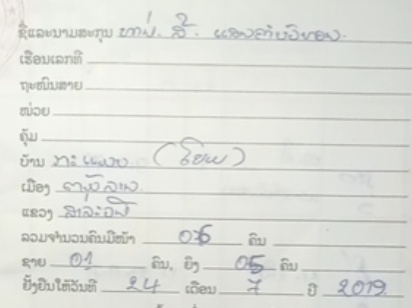 ຊື່ແລະນາມສະກຸນ ທ່ານ. ສີ. ແສງຄຳບົວທອງ.
ເຮືອນເລກທີ
ຖະໜົນສາຍ
ໜ່ວຍ
ຄຸ້ມ
ບ້ານ (ໂຂນ)
ເມືອງ ຕຸ້ມລານ.
ແຂວງ ສາລະວັນ
ລວມຈຳນວນຄົນມີໜ້າ 06 ຄົນ
ຊາຍ 01 ຄົນ, ຍິງ 05 ຄົນ
ຢັ້ງຢືນໃຫ້ວັນທີ 24 ເດືອນ 7 ປີ 2019